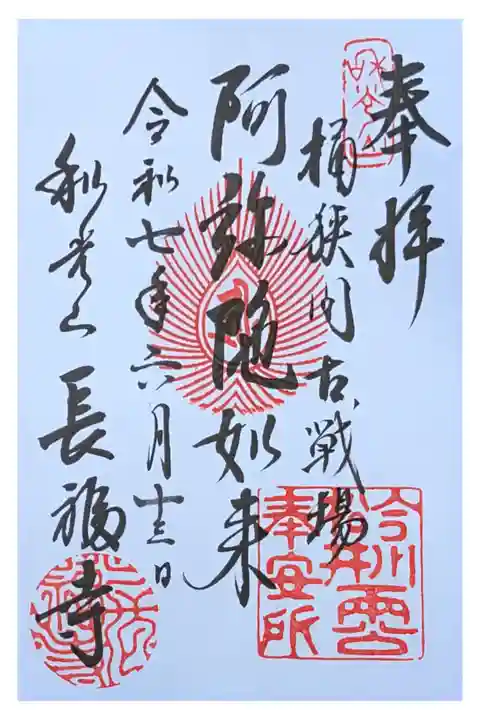 奉拝
桶狭間古戦場
阿弥陀如来
令和七年六月十三日
和光山 長福寺
今川義元公
奉安所